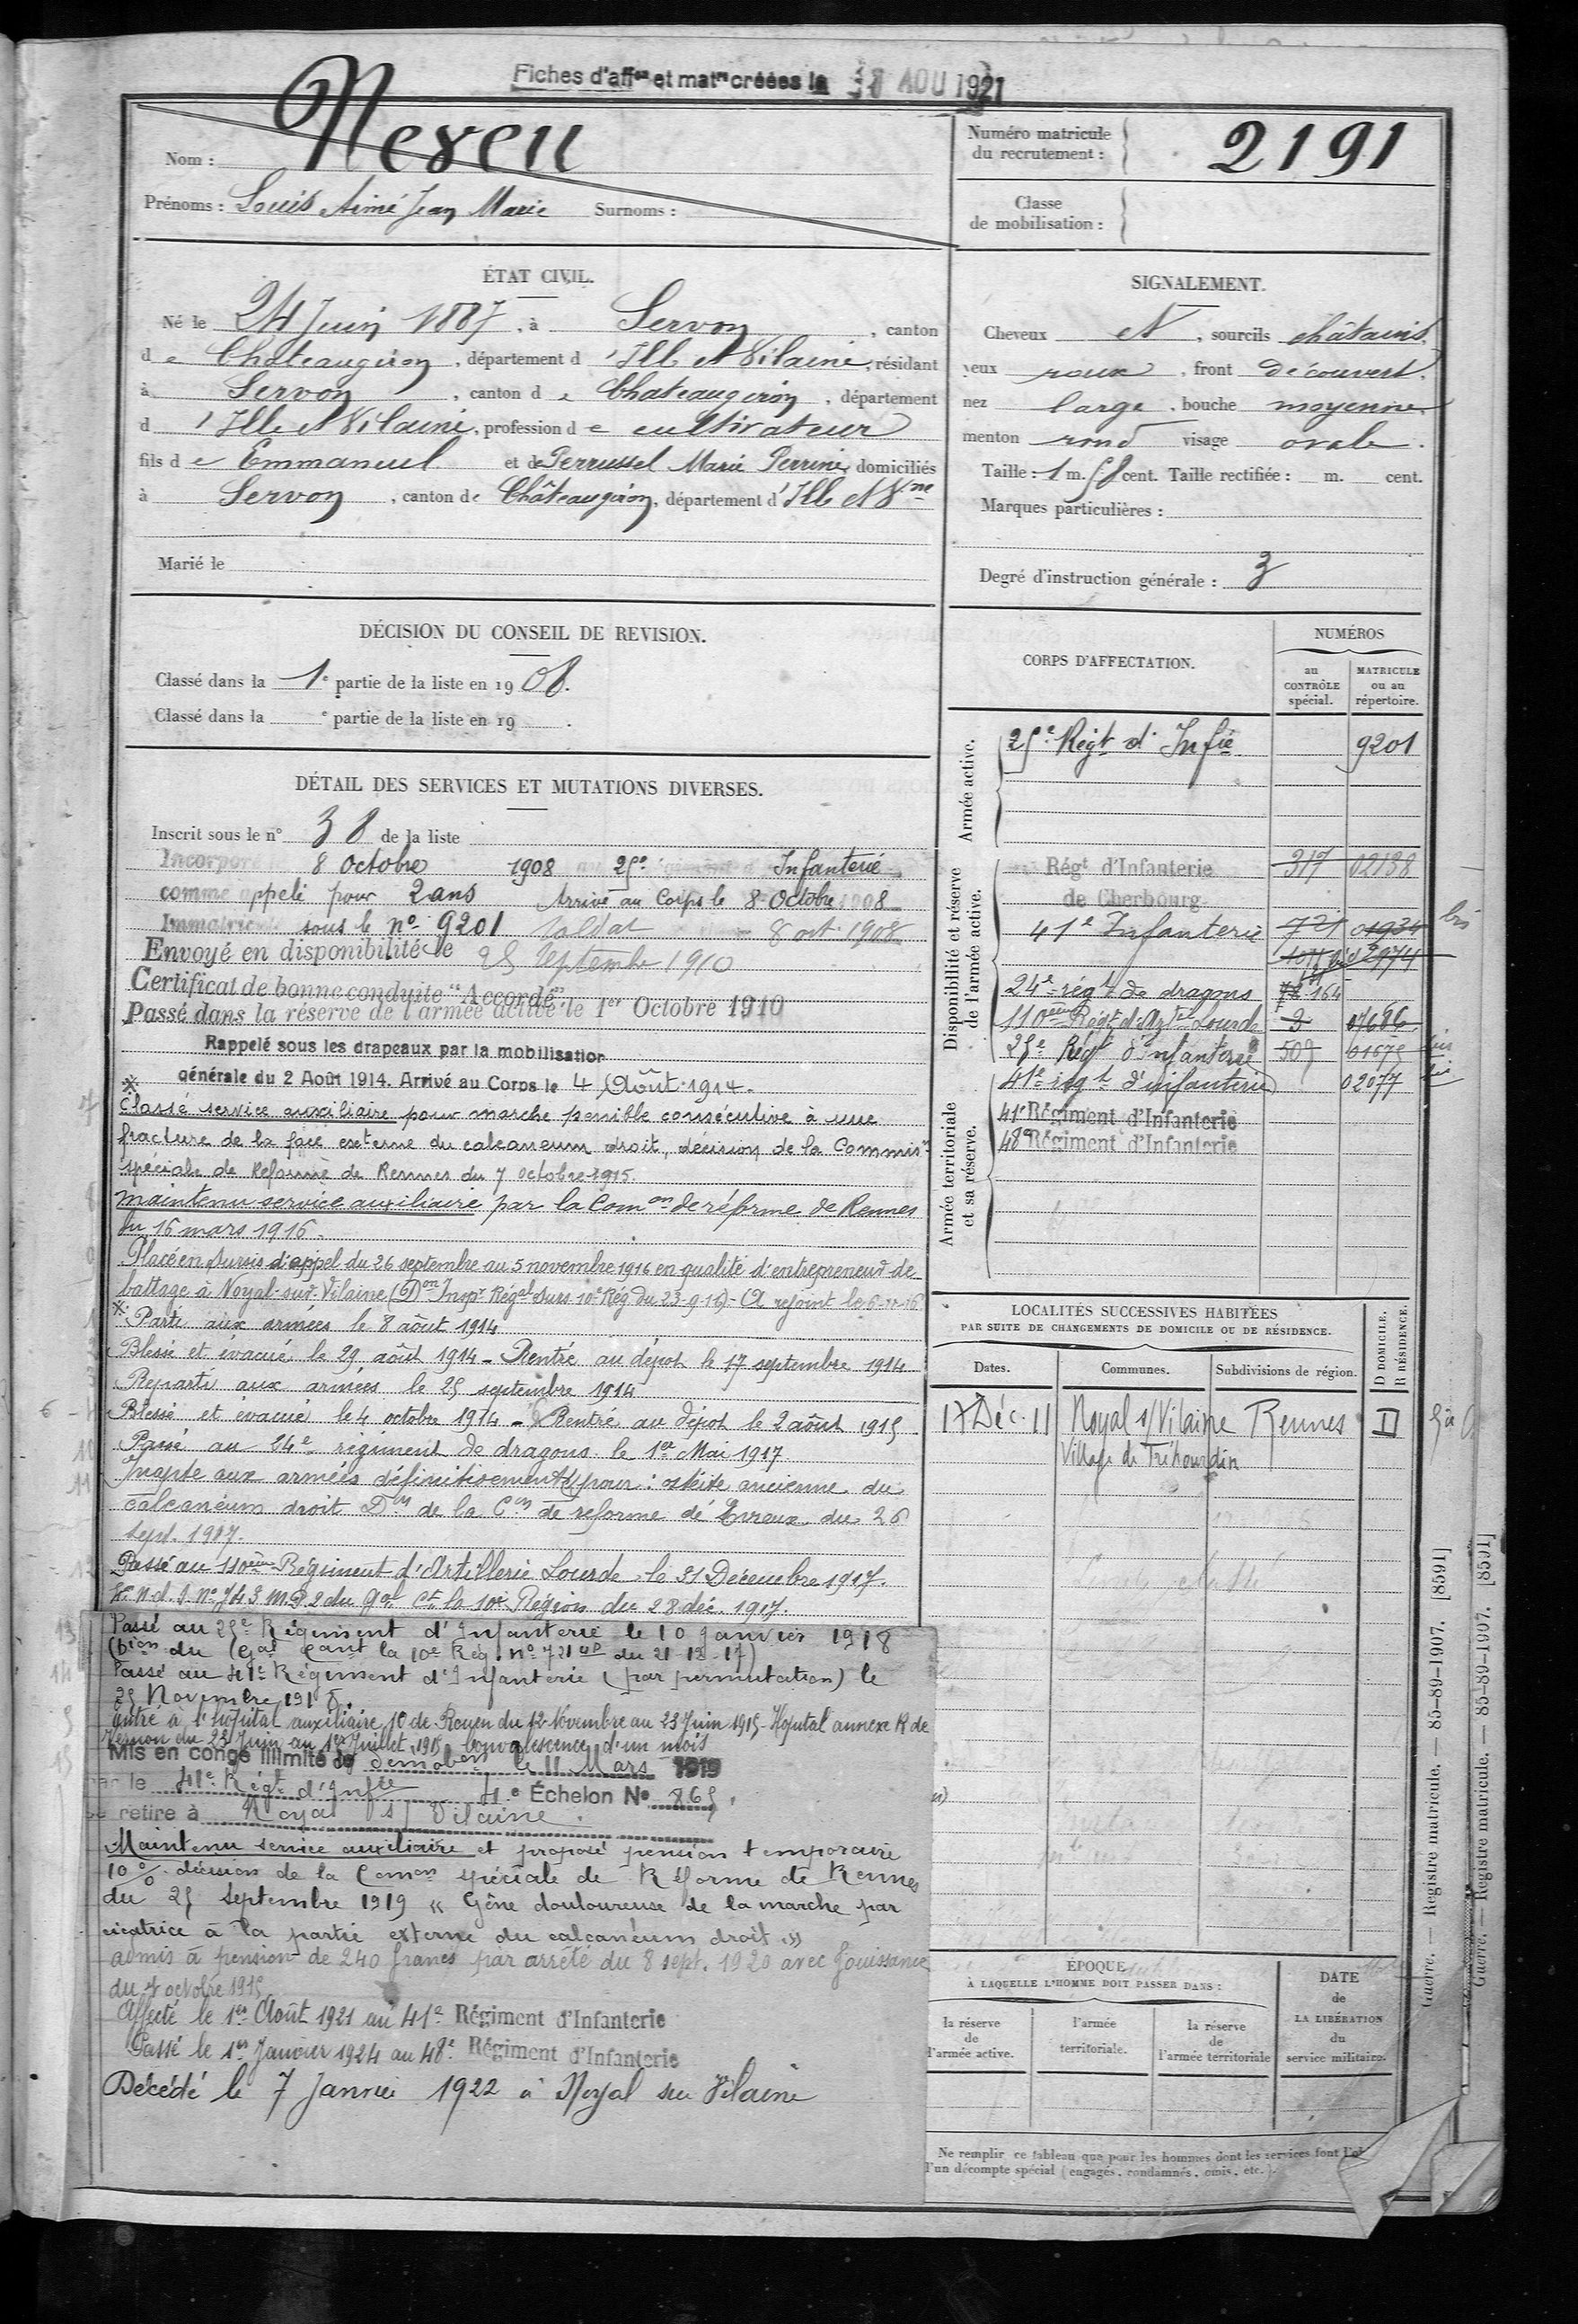 Fiches d'aff^on et mat^le créées le 18 AOU 1921
Nom : Neveu
Prénoms : Louis Aimé Jean Marie Surnoms :
Numéro matricule du recrutement : 2191
Classe de mobilisation :
ÉTAT CIVIL.
Né le 24 Juin 1887, à Servon, canton
de Chateaugiron, département d'Ille et Vilaine, résidant
à Servon, canton de Chateaugiron, département
d'Ille et Vilaine, profession de cultivateur
fils de Emmanuel et de Perrussel Marie Perrine, domiciliés
à Servon, canton de Châteaugiron, département d'Ille et V^ne
Marié le
SIGNALEMENT.
Cheveux et, sourcils châtains.
yeux roux, front découvert.
nez large, bouche moyenne
menton rond visage ovale.
Taille : 1 m. 58 cent. Taille rectifiée : m. cent.
Marques particulières :
Degré d'instruction générale : 3
DÉCISION DU CONSEIL DE REVISION.
Classé dans la 1^e partie de la liste en 1908.
Classé dans la ^e partie de la liste en 19 .
DÉTAIL DES SERVICES ET MUTATIONS DIVERSES.
Inscrit sous le n° 38 de la liste
Incorporé le 8 Octobre 1908 au 25^e régiment d'Infanterie
comme appelé pour 2 ans Arrivé au Corps le 8 Octobre 1908
Immatriculé sous le n° 9201 Soldat 8 oct. 1908
Envoyé en disponibilité le 25 Septembre 1910
Certificat de bonne conduite "Accordé"
Passé dans la réserve de l'armée active le 1^er Octobre 1910
Rappelé sous les drapeaux par la mobilisation
générale du 2 Août 1914. Arrivé au Corps le 4 Août 1914.
Classé service auxiliaire pour marche pénible consécutive à une
fracture de la face externe du calcaneum droit, décision de la Commis^on
spéciale de Réforme de Rennes du 7 octobre 1915.
Maintenu service auxiliaire par la Com^on de réforme de Rennes
du 16 mars 1916.
Placé en sursis d'appel du 26 septembre au 5 novembre 1916 en qualité d'entrepreneur de
battage à Noyal-sur-Vilaine (D^on Insp^r Rég^al Surs 10^e Rég du 23-9-16). A rejoint le 6-11-16
* Parti aux armées le 8 août 1914
Blessé et évacué le 29 août 1914 - Rentré au dépôt le 17 septembre 1914
Reparti aux armées le 25 septembre 1914
Blessé et évacué le 4 octobre 1914 - Rentré au dépôt le 2 août 1915
Passé au 24^e régiment de dragons le 1^er Mai 1917
Inapte aux armées définitivement pour : ostéite ancienne du
calcanéum droit D^on de la C^on de réforme d'Evreux du 26
sept. 1917.
Passé au 110^ème Régiment d'Artillerie Lourde le 31 Décembre 1917.
N. d. S. N° 743 M.P. 2 du G^al C^t la 10^e Région du 28 déc. 1917.
Passé au 25^e Régiment d'Infanterie le 10 Janvier 1918
(D^ion du G^al C^ant la 10^e Rég. n° 721 du 21-12-17)
Passé au 41^e Régiment d'Infanterie (par permutation) le
25 Novembre 1918.
entré à l'hôpital auxiliaire 10 de Rouen du 12 Novembre au 23 Juin 1915 - Hôpital annexe R de
Vernon du 23 Juin au 1^er Juillet 1915 convalescence d'un mois
Mis en congé illimité de démob^on le 11 Mars 1919
par le 41^e Rég^t d'Inf^ie 4^e Échelon N° 865.
se retire à Noyal s/ Vilaine.
Maintenu service auxiliaire et proposé pension temporaire
10% décision de la Com^on spéciale de Réforme de Rennes
du 25 Septembre 1919 « Gêne douloureuse de la marche par
cicatrice à la partie externe du calcanéum droit »
admis à pension de 240 francs par arrêté du 8 sept. 1920 avec Jouissance
du 7 octobre 1915
Affecté le 1^er Août 1921 au 41^e Régiment d'Infanterie
Passé le 1^er Janvier 1924 au 48^e Régiment d'Infanterie
Décédé le 7 Janvier 1922 à Noyal sur Vilaine
CORPS D'AFFECTATION.
NUMÉROS
au CONTRÔLE spécial.
MATRICULE ou au répertoire.
Armée active.
25^e Rég^t d'Inf^ie 9201
Disponibilité et réserve de l'armée active.
Rég^t d'Infanterie 317 02138
de Cherbourg
41^e Infanterie 721 01934 bis
02974
24^e rég^t de dragons 164
110^ème Rég^t d'A^rtie Lourde 3 07686
25^e Rég^t d'Infanterie 509 01675
41^e rég^t d'infanterie 02077
Armée territoriale et sa réserve.
41^e Régiment d'Infanterie
48^e Régiment d'Infanterie
LOCALITÉS SUCCESSIVES HABITÉES
PAR SUITE DE CHANGEMENTS DE DOMICILE OU DE RÉSIDENCE.
Dates. Communes. Subdivisions de région. D DOMICILE. R RÉSIDENCE.
17 Déc. 11 Noyal s/Vilaine Rennes D
Village de Tréhourdin
ÉPOQUE
À LAQUELLE L'HOMME DOIT PASSER DANS :
la réserve de l'armée active.
l'armée territoriale.
la réserve de l'armée territoriale
DATE de LA LIBÉRATION du service militaire.
Ne remplir ce tableau que pour les hommes dont les services font l'ob
l'un décompte spécial (engagés, condamnés, omis, etc.).
Guerre. — Registre matricule. — 85-89-1907. [8591]
Guerre. — Registre matricule. — 85-89-1907. [8591]